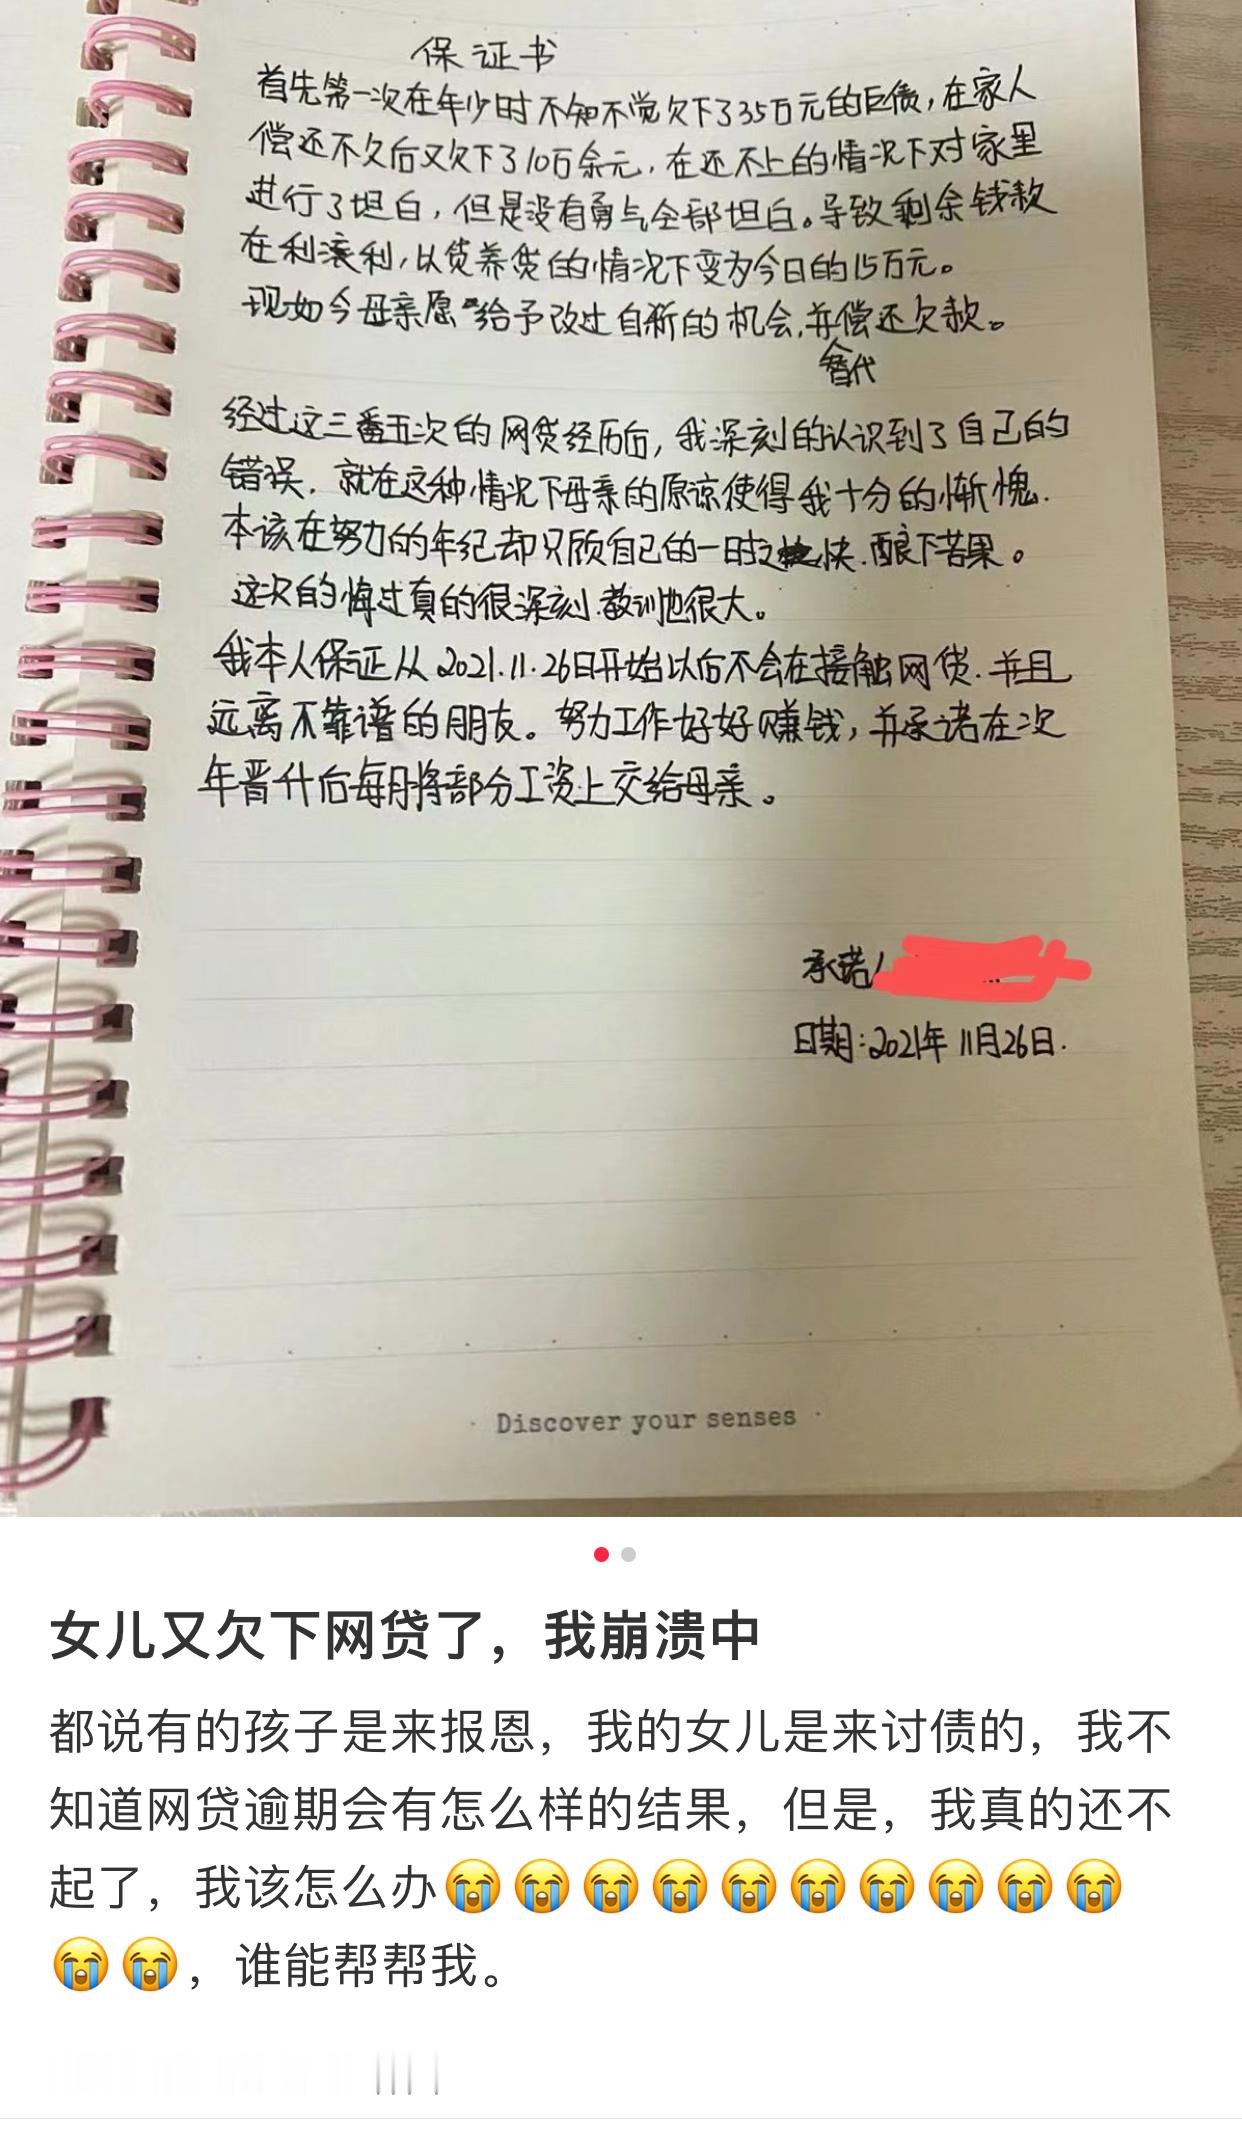 保证书
首先第一次在年少时不知不觉欠下了35万元的巨债，在家人
偿还不久后又欠下了10万余元，在还不上的情况下对家里
进行了坦白，但是没有勇气全部坦白。导致剩余钱款
在利滚利，以贷养贷的情况下变为今日的15万元。
现如今母亲愿给予改过自新的机会，并偿还欠款。
替代
经过这三番五次的网贷经历后，我深刻的认识到了自己的
错误．就在这种情况下母亲的原谅使得我十分的惭愧．
本该在努力的年纪却只顾自己的一时之快．酿下苦果。
这次的悔过真的很深刻．教训也很大。
我本人保证从2021.11.26日开始以后不会在接触网贷．并且
远离不靠谱的朋友。努力工作好好赚钱，并承诺在次
年晋升后每月将部分工资上交给母亲。
承诺人
日期：2021年11月26日．
· Discover your senses ·
女儿又欠下网贷了，我崩溃中
都说有的孩子是来报恩，我的女儿是来讨债的，我不
知道网贷逾期会有怎么样的结果，但是，我真的还不
起了，我该怎么办😭😭😭😭😭😭😭😭😭😭
😭😭，谁能帮帮我。